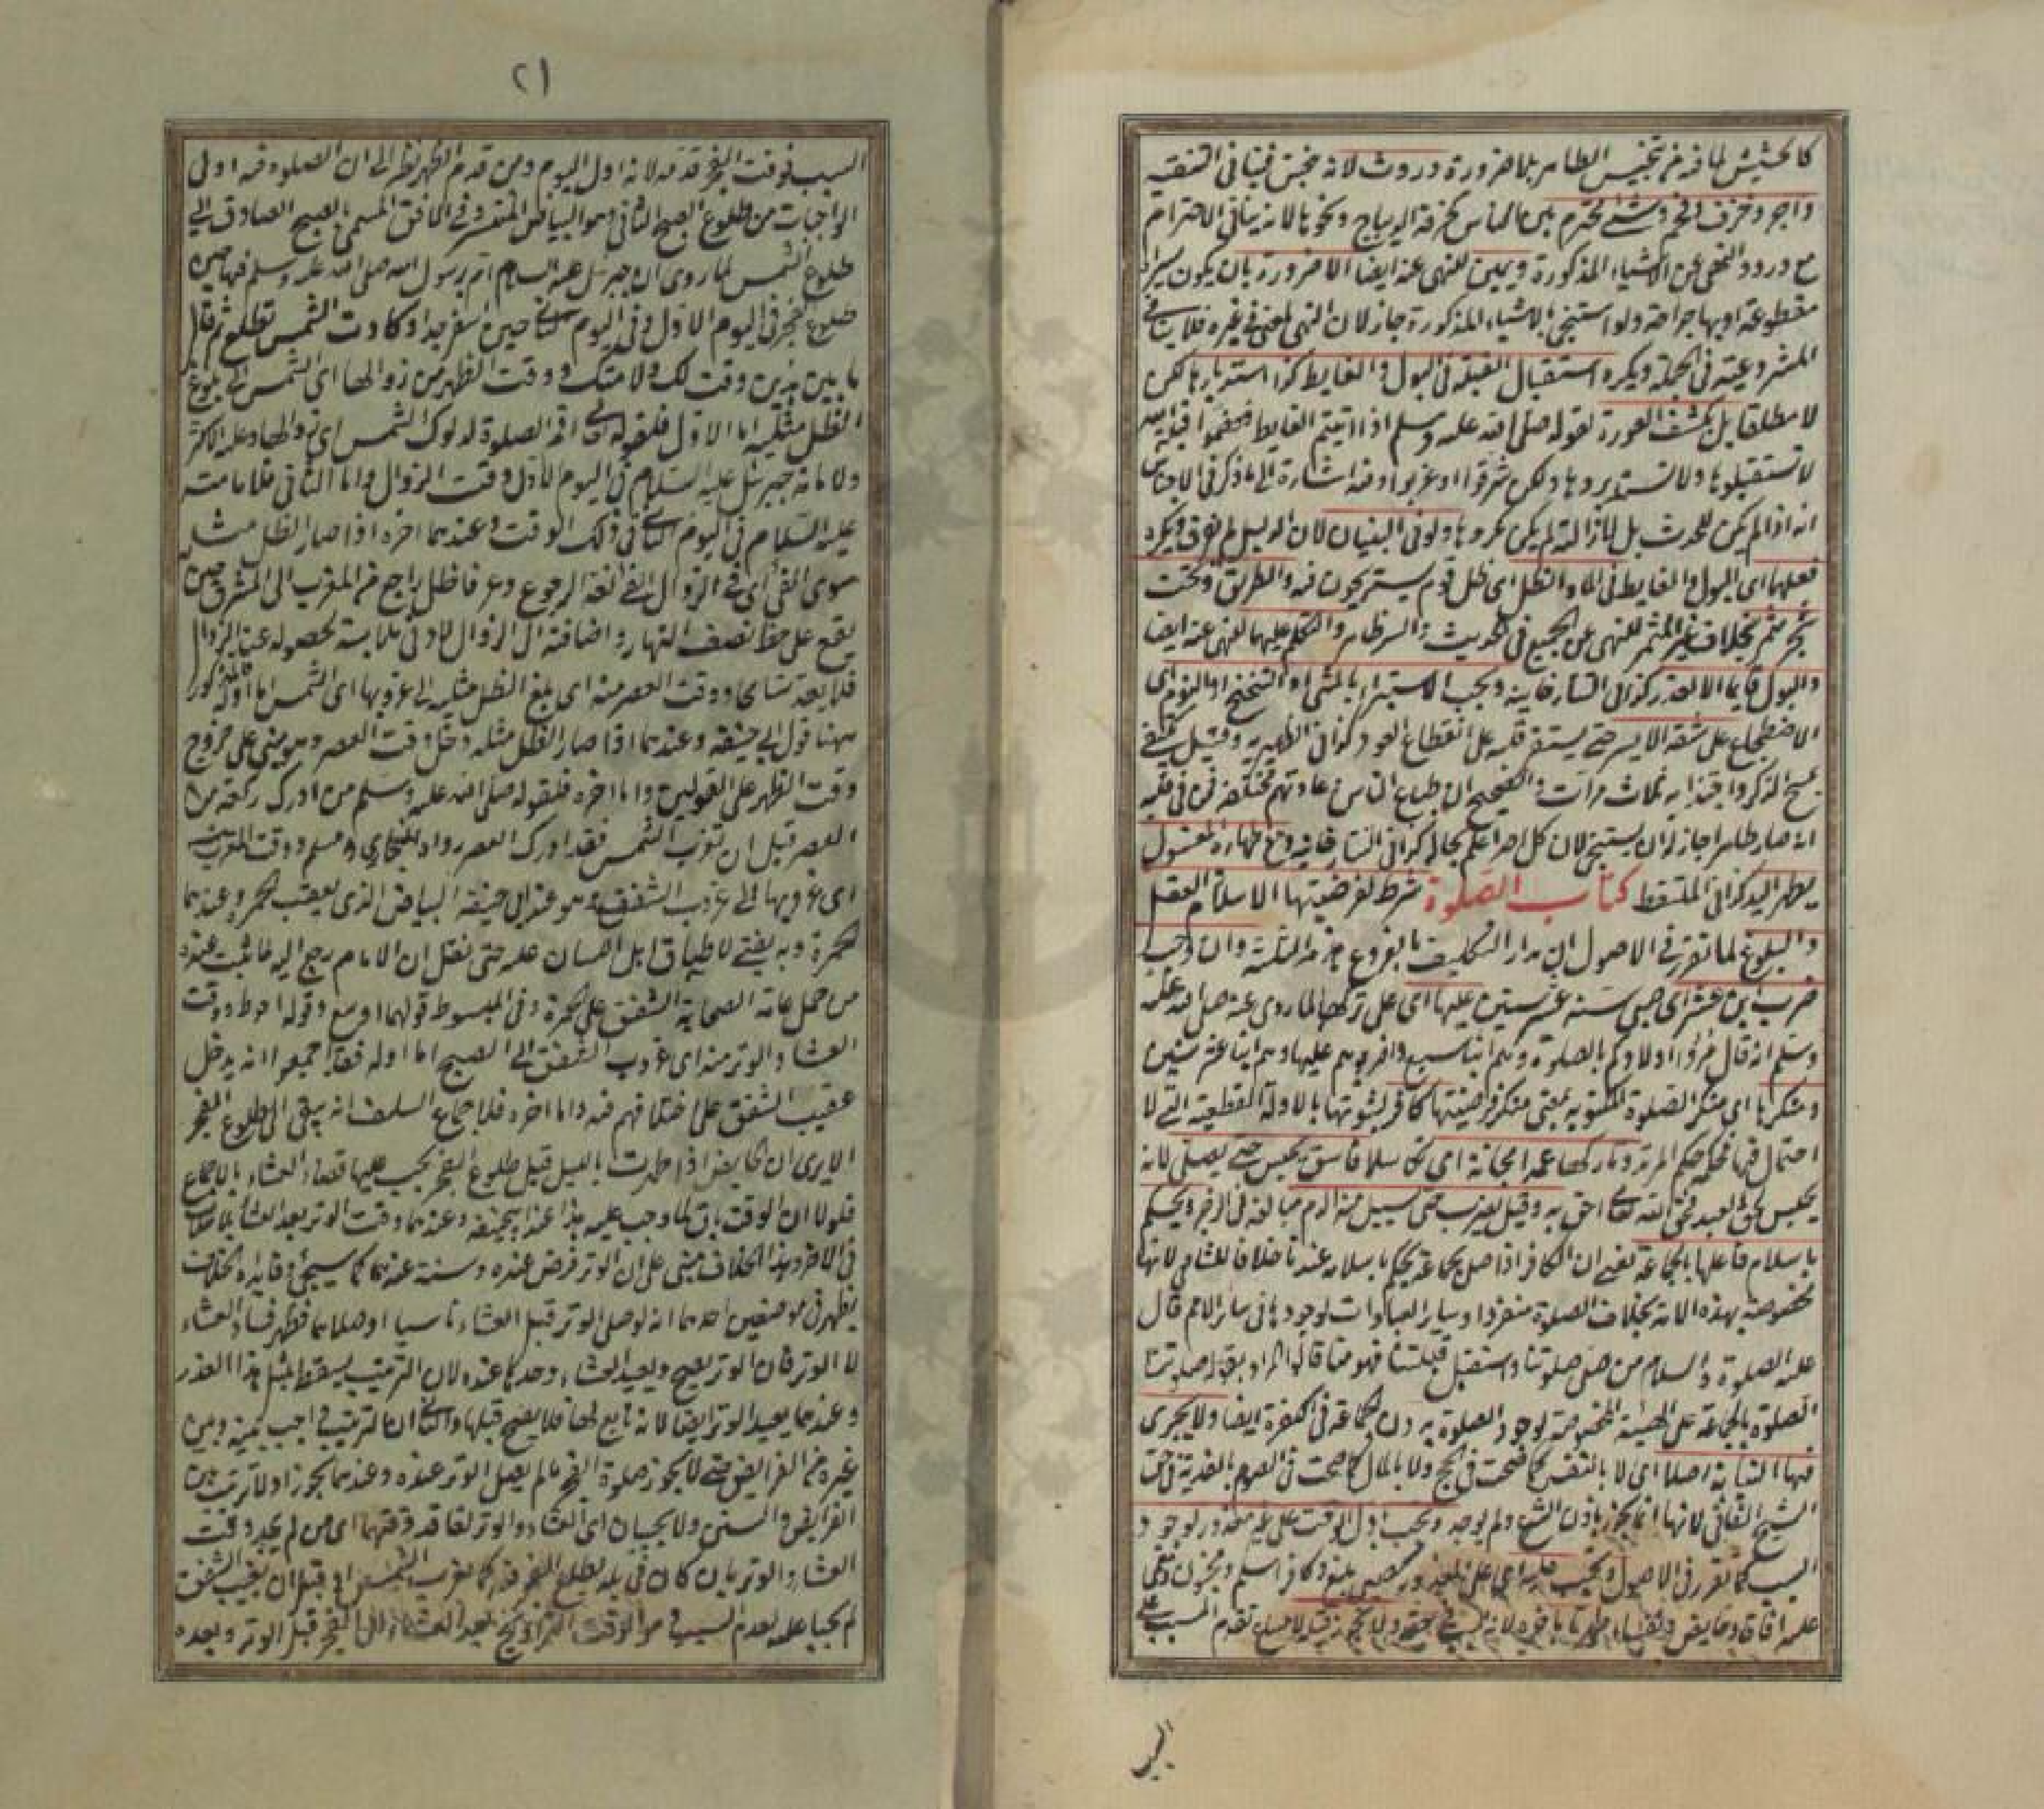 كالحشيش لما فيه من تنجيس الطاهر بلا ضرورة وروث لانه نجس فينافي التنقية
واجر وخزف وفحم وشئ محترم بين الناس كخرقة الديباج ونحوها لانه ينافي الاحترام
مع ورود النهي عن الاشياء المذكورة ويمين للنهي عنه ايضا الا ضرورة بان يكون يسراه
مقطوعة او بها جراحة ولو استنجى بالاشياء المذكورة جاز لان النهي لمعنى في غيره فلا ينافي
المشروعية في الجملة ويكره استقبال القبلة في البول والغايط كذا استدبارها لكن
لا مطلقا بل بكشف العورة لقوله صلى الله عليه وسلم اذا اتيتم الغايط فعظموا قبلة الله
لا تستقبلوها ولا تستدبروها ولكن شرقوا او غربوا وفيه اشارة الى ما ذكر في الاجناس
انه اذا لم يكن للحدث بل لازالته لم يكن مكروها ولو في البنيان لان الدليل لم يفرق ويكره
فعلهما اى البول والغايط في الماء والظل اى ظل قوم يستريحون فيه والطريق وتحت
شجر مثمر بخلاف غير المثمر للنهي عن الجميع في الحديث والسر ظاهر والتكلم عليهما للنهي عنه ايضا
والبول قايما الا لعذر كذا في التتارخانية ويجب الاستبراء بالمشى او التنحنح او النوم اى
الاضطجاع على شقه الايسر حتى يستقر قلبه على انقطاع العود كذا في الظهيرية وقيل يكتفي
بمسح الذكر واجتذابه ثلاث مرات والصحيح ان طباع الناس وعادتهم مختلفة فمن في قلبه
انه صار طاهرا جاز له ان يستنجي لان كل احد اعلم بحاله كذا في التتارخانية ومع طهارة المغسول
يطهر اليد كذا في الملتقط كتاب الصلوة شرط لفرضيتها الاسلام والعقل
والبلوغ لما تقرر في الاصول ان مدار التكليف بالفروع هذه الثلثة وان وجب
ضرب ابن عشر اى صبي سنه عشر سنين عليها اى على تركها لما روى عنه صلى الله عليه
وسلم انه قال مروا اولادكم بالصلوة وهم ابناء سبع واضربوهم عليها وهم ابناء عشر سنين
ومنكرها اى منكر الصلوة المكتوبة بمعنى منكر فرضيتها كافر لثبوتها بالادلة القطعية التي لا
احتمال فيها فحكمه حكم المرتد وتاركها عمدا مجانة اى تكاسلا فاسق يحبس حتى يصلي لانه
يحبس لحق العبد فحق الله تعالى احق به وقيل يضرب حتى يسيل منه الدم مبالغة في الزجر ويحكم
باسلام فاعلها بالجماعة يعني ان الكافر اذا صلى بجماعة يحكم باسلامه عندنا خلافا للشافعي لانها
مخصوصة بهذه الامة بخلاف الصلوة منفردا وساير العبادات لوجودها في سائر الامم قال
عليه الصلوة والسلام من صلى صلوتنا واستقبل قبلتنا فهو منا قالوا المراد بقوله صلوتنا
الصلوة بالجماعة على الهيئة المخصوصة لوجود الصلوة بدون الجماعة في الكفرة ايضا ولا يجرى
فيها النيابة اصلا اى لا بالنفس كما صحت في الحج ولا بالمال كما صحت في الصوم بالفدية في حق
الشيخ الفاني لانها انما تجوز باذن الشرع ولم يوجد وتجب باول الوقت على غير معذور لوجود
السبب كما تقرر في الاصول وتجب عليه اى على المعذور كصبي بلغ وكافر اسلم ومجنون ومغمى
عليه افاق وحايض ونفساء طهرتا باخره لانه السبب في حقه ولا تجوز قبله لامتناع تقدم المسبب على
السبب
٢١
السبب فوقت الفجر قدمه لانه اول اليوم ومن قدم الظهر نظر الى ان الصلوة فيه اول
الواجبات من طلوع الصبح الثاني وهو البياض المنتشر في الافق المسمى بالصبح الصادق الى
طلوع الشمس لما روى ان جبرئيل عليه السلام ام برسول الله صلى الله عليه وسلم فيها حين
طلوع الفجر في اليوم الاول وفي اليوم الثاني حين اسفر جدا وكادت الشمس تطلع ثم قال
ما بين هذين وقت لك ولامتك ووقت الظهر من زوالها اى الشمس الى بلوغ
الظل مثليه اما الاول فلقوله تعالى اقم الصلوة لدلوك الشمس اى زوالها وعليه الاكثر
ولامامة جبرئيل عليه السلام في اليوم الاول وقت الزوال واما الثاني فلامامته
عليه السلام في اليوم الثاني في ذلك الوقت وعندهما اخره اذا صار الظل مثله
سوى الفئ اى فئ الزوال الفئ لغة الرجوع وعرفا ظل راجع من المغرب الى المشرق حين
يقع على خط نصف النهار واضافته الى الزوال لادنى ملابسة لحصوله عند الزوال
فلا يعد تسامحا ووقت العصر منه اى بلغ الظل مثليه الى غروبها اى الشمس اما اوله فالمذكور
ههنا قول ابي حنيفة وعندهما اذا صار الظل مثله دخل وقت العصر وهو مبني على خروج
وقت الظهر على القولين واما اخره فلقوله صلى الله عليه وسلم من ادرك ركعة من
العصر قبل ان تغرب الشمس فقد ادرك العصر رواه البخاري ومسلم ووقت المغرب منه
اى غروبها الى غروب الشفق وهو عند ابي حنيفة البياض الذى يعقب الحمرة وعندهما
الحمرة وبه يفتى لاطباق اهل اللسان عليه حتى نقل ان الامام رجع اليه لما ثبت عنده
من حمل عامة الصحابة الشفق على الحمرة وفي المبسوط قولهما اوسع وقوله احوط ووقت
العشاء والوتر منه اى غروب الشفق الى الصبح اما اوله فقد اجمعوا انه يدخل
عقيب الشفق على اختلافهم فيه واما اخره فلاجماع السلف انه يبقى الى طلوع الفجر
الا يرى ان الحايض اذا طهرت بالليل قبل طلوع الفجر يجب عليها قضاء العشاء بالاجماع
فلولا ان الوقت باق لما وجب عليها هذا عند ابي حنيفة وعندهما وقت الوتر بعد العشاء بلا خلاف
في الاخر وهذا الخلاف مبني على ان الوتر فرض عنده وسنة عندهما كما سيجئ وفايدة الخلاف
يظهر في موضعين احدهما انه لو صلى الوتر قبل العشاء ناسيا او صلاهما فظهر فساد العشاء
لا الوتر فان الوتر يصح ويعيد العشاء وحدها عنده لان الترتيب يسقط بمثل هذا العذر
وعندهما يعيد الوتر ايضا لانه تابع لها فلا يصح قبلها والثاني ان الترتيب واجب بينه وبين
غيره من الفرايض حتى لا يجوز صلوة الفجر ما لم يصل الوتر عنده وعندهما يجوز اذ لا ترتيب بين
الفرايض والسنن ولا يجبان اى العشاء والوتر لفاقد وقتهما اى من لم يجد وقت
العشاء والوتر بان كان في بلد يطلع الفجر فيه كما تغرب الشمس او قبل ان يغيب الشفق
لم يجبا عليه لعدم السبب وهو الوقت والتراويح بعد العشاء الى الفجر قبل الوتر وبعده